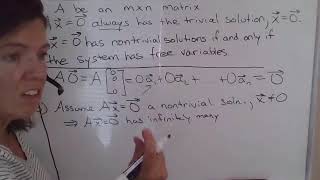 A be an m×n matrix
A x⃗ = 0⃗ always has the trivial solution, x⃗ = 0⃗.
x⃗ = 0⃗ has nontrivial solutions if and only if
the system has free variables.
A 0⃗ = A [0 0 0] = 0a⃗₁ + 0a⃗₂ + ... + 0a⃗ₙ = 0⃗
) Assume A x⃗ = 0⃗ a nontrivial soln., x⃗ ≠ 0
⇒ A x⃗ = 0⃗ has infinitely many